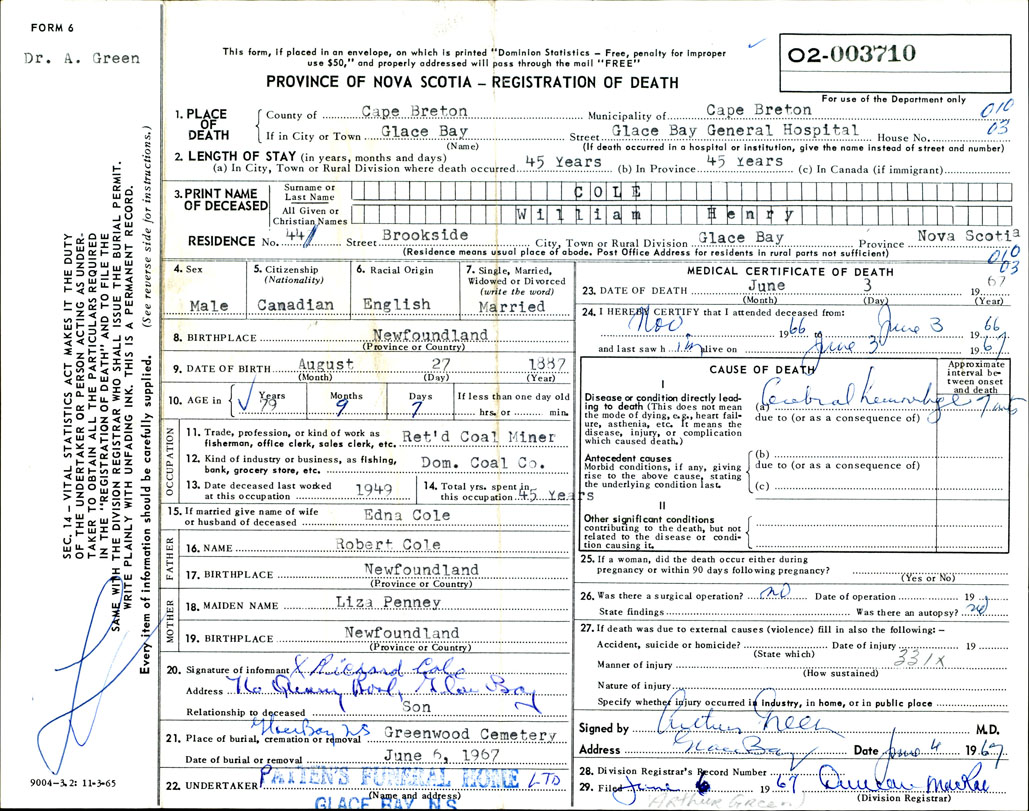 FORM 6
Dr. A. Green
This form, if placed in an envelope, on which is printed "Dominion Statistics – Free, penalty for improper
use $50," and properly addressed will pass through the mail "FREE"
PROVINCE OF NOVA SCOTIA – REGISTRATION OF DEATH
O2-003710
For use of the Department only
1. PLACE OF DEATH
County of Cape Breton Municipality of Cape Breton 010
If in City or Town Glace Bay Street Glace Bay General Hospital House No. 03
(Name) (If death occurred in a hospital or institution, give the name instead of street and number)
2. LENGTH OF STAY (in years, months and days)
(a) In City, Town or Rural Division where death occurred 45 Years (b) In Province 45 Years (c) In Canada (if immigrant)
3. PRINT NAME OF DECEASED
Surname or Last Name COLE
All Given or Christian Names William Henry
RESIDENCE No. 44 Street Brookside City, Town or Rural Division Glace Bay Province Nova Scotia
(Residence means usual place of abode. Post Office Address for residents in rural parts not sufficient) 010
03
4. Sex Male
5. Citizenship (Nationality) Canadian
6. Racial Origin English
7. Single, Married, Widowed or Divorced (write the word) Married
8. BIRTHPLACE Newfoundland
(Province or Country)
9. DATE OF BIRTH August 27 1887
(Month) (Day) (Year)
10. AGE in Years Months Days If less than one day old
79 9 7 hrs. or min.
OCCUPATION
11. Trade, profession, or kind of work as fisherman, office clerk, sales clerk, etc. Ret'd Coal Miner
12. Kind of industry or business, as fishing, bank, grocery store, etc. Dom. Coal Co.
13. Date deceased last worked at this occupation 1949
14. Total yrs. spent in this occupation 45 Years
15. If married give name of wife or husband of deceased Edna Cole
FATHER
16. NAME Robert Cole
17. BIRTHPLACE Newfoundland
(Province or Country)
MOTHER
18. MAIDEN NAME Liza Penney
19. BIRTHPLACE Newfoundland
(Province or Country)
20. Signature of informant X Cole
Address Glace Bay
Relationship to deceased Son
Glace Bay NS
21. Place of burial, cremation or removal Greenwood Cemetery
Date of burial or removal June 6, 1967
22. UNDERTAKER PATTEN'S FUNERAL HOME LTD
(Name and address)
GLACE BAY, N.S.
MEDICAL CERTIFICATE OF DEATH
23. DATE OF DEATH June 3 1967
(Month) (Day) (Year)
24. I HEREBY CERTIFY that I attended deceased from:
Nov. 1966 June 3 1966
and last saw h im alive on June 3 1967
CAUSE OF DEATH
Approximate interval between onset and death
I
Disease or condition directly leading to death (This does not mean the mode of dying, e.g., heart failure, asthenia, etc. It means the disease, injury, or complication which caused death.)
(a) Cerebral hemorrhage
due to (or as a consequence of)
Antecedent causes
Morbid conditions, if any, giving rise to the above cause, stating the underlying condition last.
(b)
due to (or as a consequence of)
(c)
II
Other significant conditions
contributing to the death, but not related to the disease or condition causing it.
25. If a woman, did the death occur either during
pregnancy or within 90 days following pregnancy?
(Yes or No)
26. Was there a surgical operation? no Date of operation 19
State findings Was there an autopsy? no
27. If death was due to external causes (violence) fill in also the following: –
Accident, suicide or homicide? Date of injury 19
(State which) 331X
Manner of injury
(How sustained)
Nature of injury
Specify whether injury occurred in Industry, in home, or in public place
Signed by Arthur Green M.D.
Address Glace Bay Date June 4 1967
28. Division Registrar's Record Number
29. Filed June 6 1967 Duncan MacRae
(Arthur Green) (Division Registrar)
SEC. 14 – VITAL STATISTICS ACT MAKES IT THE DUTY
OF THE UNDERTAKER OR PERSON ACTING AS UNDER-
TAKER TO OBTAIN ALL THE PARTICULARS REQUIRED
IN THE "REGISTRATION OF DEATH" AND TO FILE THE
SAME WITH THE DIVISION REGISTRAR WHO SHALL ISSUE THE BURIAL PERMIT.
WRITE PLAINLY WITH UNFADING INK. THIS IS A PERMANENT RECORD.
Every item of information should be carefully supplied. (See reverse side for instructions.)
9004-3.2: 11-3-65